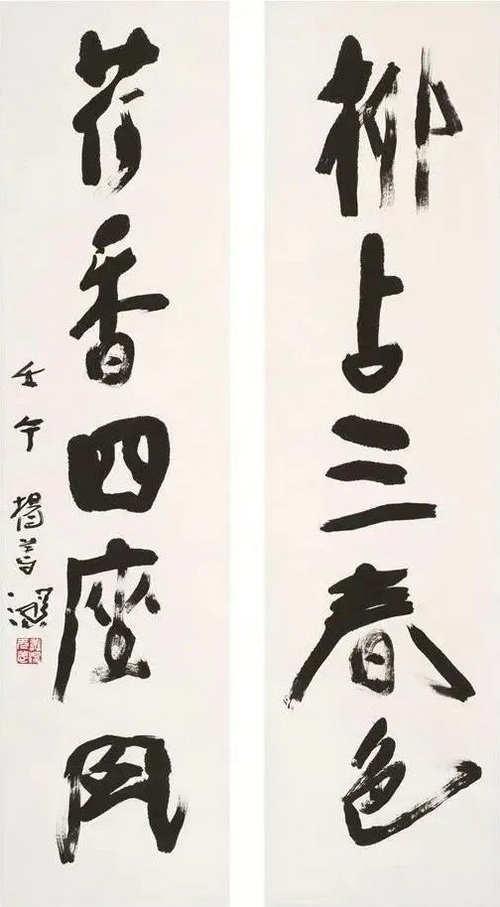 柳占三春色
荷香四座风
壬午楊善深